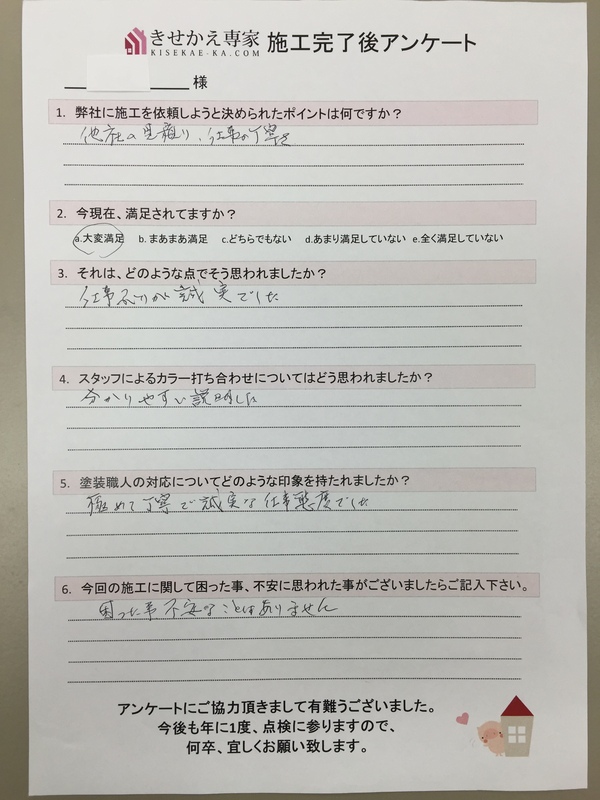 きせかえ専家
KISEKAE-KA.COM
施工完了後アンケート
様
1. 弊社に施工を依頼しようと決められたポイントは何ですか？
他社の見積り、仕事の丁寧さ
2. 今現在、満足されてますか？
a.大変満足 b. まあまあ満足 c.どちらでもない d.あまり満足していない e.全く満足していない
3. それは、どのような点でそう思われましたか？
仕事ぶりが誠実でした
4. スタッフによるカラー打ち合わせについてはどう思われましたか？
分かりやすい説明した
5. 塗装職人の対応についてどのような印象を持たれましたか？
極めて丁寧で誠実な仕事態度でした
6. 今回の施工に関して困った事、不安に思われた事がございましたらご記入下さい。
困った事不安なことはありません
アンケートにご協力頂きまして有難うございました。
今後も年に1度、点検に参りますので、
何卒、宜しくお願い致します。